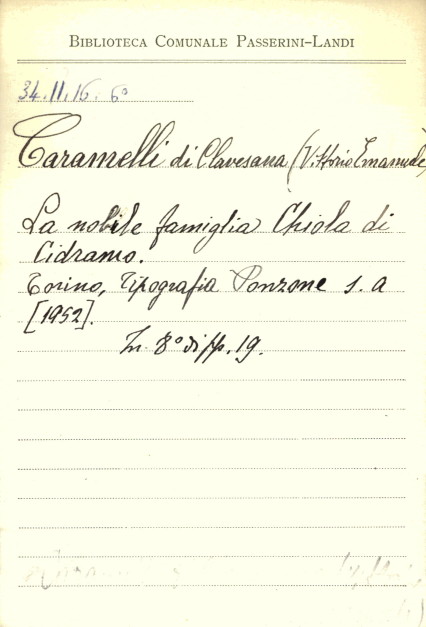 BIBLIOTECA COMUNALE PASSERINI-LANDI
34.II.16. 6°
Caramelli di Clavesana (Vittorio Emanuele)
La nobile famiglia Chiola di
Cidramo.
Torino, Tipografia Ponzone s. a
[1952].
In 8° di pp. 19.